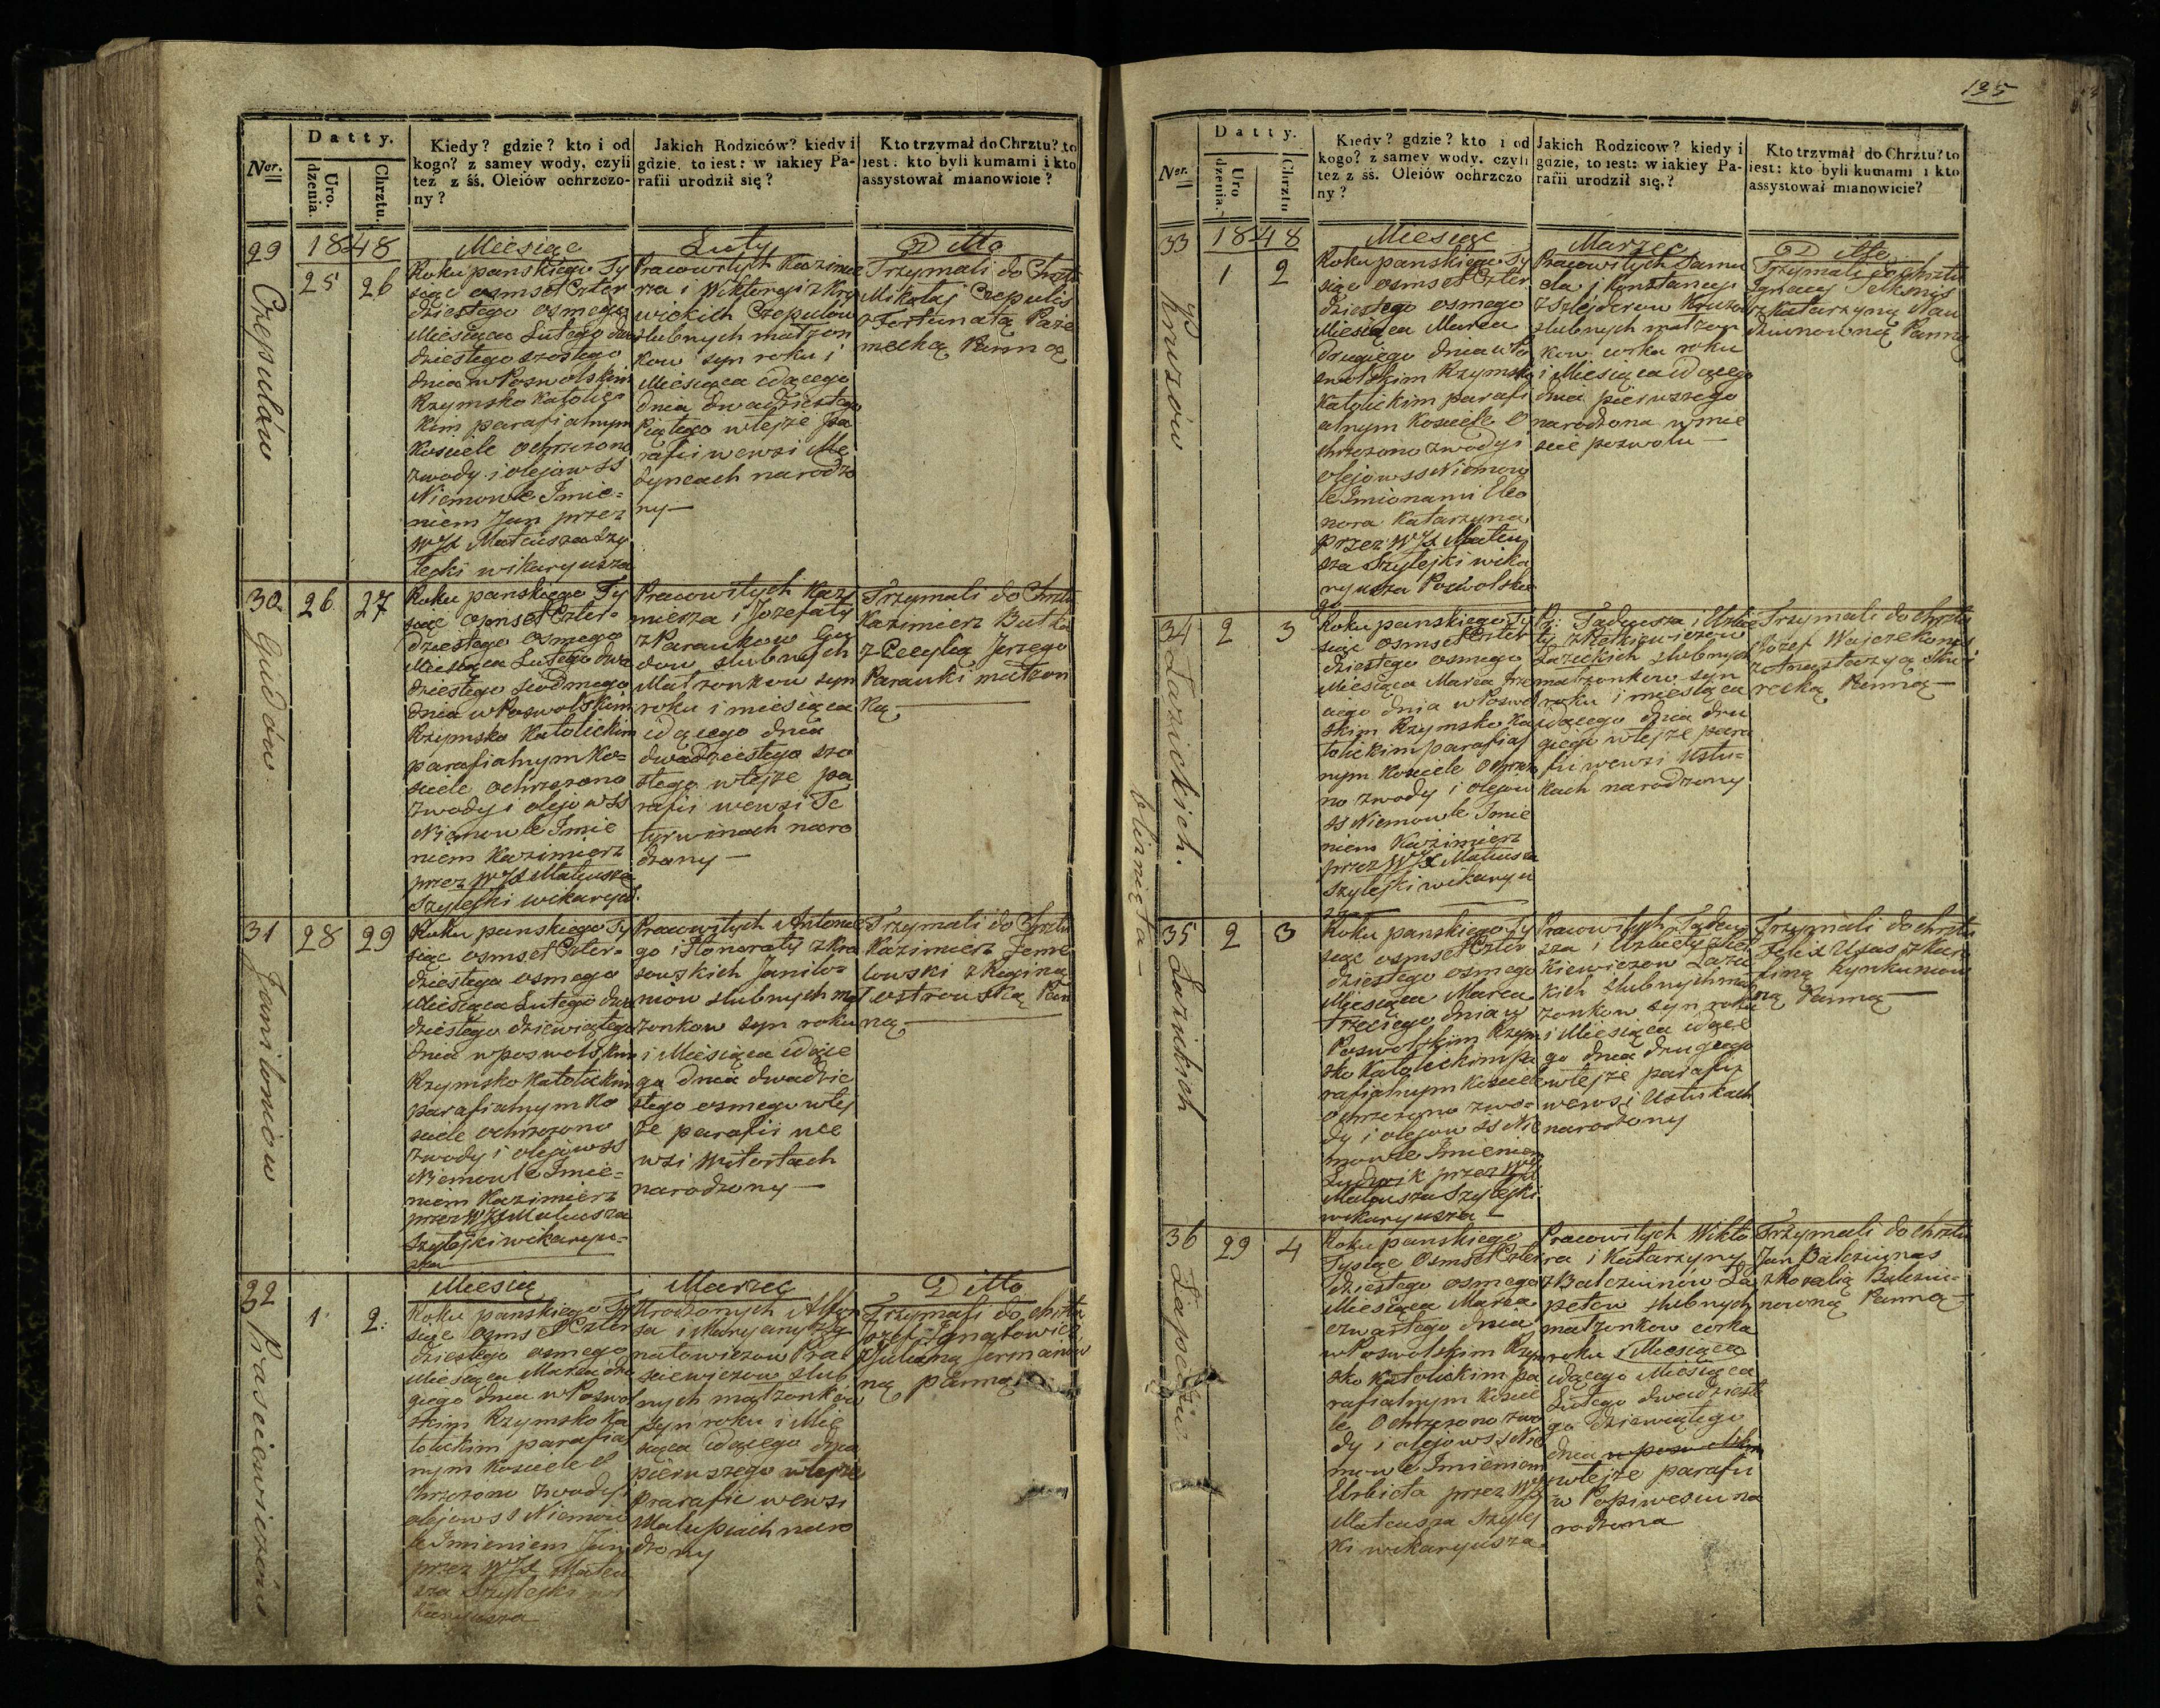 Datty.
Ner.
Uro. dzenia.
Chrztu.
Kiedy? gdzie? kto i od
kogo? z samey wody, czyli
też z śś. Oleiów ochrzczo-
ny?
Jakich Rodziców? kiedy i
gdzie, to iest: w iakiey Pa-
rafii urodził się?
Kto trzymał do Chrztu? to
iest: kto byli kumami i kto
assystował mianowicie?
29
1848
25
26
Czepulów
Miesiąc
Roku panskiego Ty
siąc osmset Czter
dziestego osmego
Miesiąca Lutego dwu
dziestego szostego
dnia w Poswolskim
Rzymsko Katolic
kim parafialnym
Kosciele ochrzczono
z wody i olejow SS
Niemowle Imie=
niem Jan przez
WJX Mateusza Szy
lejki wikaryusza
Luty
Pracowitych Kazimie
rza i Wiktoryi z Kry
wickich Czepulow
slubnych małżon
kow syn roku i
Miesiąca idącego
dnia dwadziestego
Piątego w tejże pa
rafii we wsi Me
dyncach narodzo
ny—
Ditto
Trzymali do Chrztu
Mikołaj Czepulis
z Fortunatą Paże
mecką Panną
30
26
27
Gudów
Roku panskiego Ty
siąc osmset Czter=
dziestego osmego
Miesiąca Lutego dwa
dziestego siodmego
dnia w Poswolskim
Rzymsko Katolickim
parafialnym Ko=
sciele ochrzczono
z wody i olejow SS
Niemowle Imie
niem Kazimierz
przez WJX Mateusza
Szylejki wikaryus.
Pracowitych Kazi
mierza i Jozefaty
z Paraukow Gu
dow slubnych
Małżonkow syn
roku i miesiąca
idącego dnia
dwadziestego szo
stego w tejże pa
rafii we wsi Te
tyrwinach naro
dzony—
Trzymali do Chrztu
Kazimierz Butka
z Cecylią Jerzego
Parauki małżon
ką—
31
28
29
Janiloniow
Roku panskiego Ty
siąc osmset Czter=
dziestego osmego
Miesiąca Lutego dwu
dziestego dziewiątego
dnia w poswolskim
Rzymsko Katolickim
parafialnym Ko
sciele ochrzczono
z wody i olejow SS
Niemowle Imie=
niem Kazimierz
przez WJX Mateusza
Szylejki wikaryu=
sza
Pracowitych Antonie
go i Honoraty z Kra
sowskich Janilo=
niow slubnych mał
żonkow syn roku
i Miesiąca idące
go dnia dwadzie
stego osmego w tej
że parafii we
wsi Mitortach
narodzony—
Trzymali do Chrztu
Kazimierz
lowski z Reginą
ostrowską Pan
ną—
32
1
2.
Prasciewiczow
Miesiąc
Roku panskiego Ty
siąc osmset Czter
dziestego osmego
Miesiąca Marca dru
giego dnia w Poswol
skim Rzymsko Ka
tolickim parafial
nym Kosciele O
chrzczono z wody i
olejow SS Niemow
le Imieniem Jan
przez WJX Mateu
sza Szylejki wi
karyusza
Marzec
Urodzonych Alfon
sa i Maryanny z Ig
natowiczow Pra=
sciewiczow slub
nych małżonków
syn roku i Mie
siąca idącego dnia
pierwszego w tejże
Prarafii we wsi
Malupiach naro
dzony
Ditto
Trzymali do chrztu
Jozef Ignatowicz
z Julianną Jermanow
ną panną
135
Datty.
Ner.
Uro dzenia.
Chrztu
Kiedy? gdzie? kto i od
kogo? z samey wody, czyli
też z śś. Oleiów ochrzczo
ny?
Jakich Rodzicow? kiedy i
gdzie, to iest: w iakiey Pa-
rafii urodził się,?
Kto trzymał do Chrztu? to
iest: kto byli kumami i kto
assystował mianowicie?
33
1848
1
2
Miesiąc
Roku panskiego Ty
siąc osmset Czter
dziestego osmego
Miesiąca Marca
drugiego dnia w Po
swolskim Rzymsko
Katolickim parafi
alnym Kosciele O
chrzczono z wody i
olejow SS Niemow
le Imionami Eleo
nora Katarzyna
przez WJX Mateu
sza Szylejki wika
ryusza Poswolskie
go
Marzec
Pracowitych Samu
ela i Konstancyi
z Szlejderow
slubnych małżon
kow corka roku
i Miesiąca idącego
dnia pierwszego
narodzona w mie
scie poswolu—
Ditto
Trzymali do chrztu
Ignacy
z Katarzyną Nau
dziunowną Panną
34
2
3
Łazickich.
bliznięta—
Roku panskiego Ty
siąc osmset Czter
dziestego osmego
Miesiąca Marca trze
ciego dnia w Poswol
skim Rzymsko Ka
tolickim parafial
nym Kosciele Ochrzczo
no z wody i olejow
SS Niemowle Imie
niem Kazimierz
przez WJX Mateusza
Szylejki wikaryu
sza
P: Tadeusza i Elzbie
ty z Petkiewiczow
Łazickich slubnych
małżonkow syn
roku i miesiąca
idącego dnia dru
giego w tejże para
fii we wsi Ustu=
kach narodzony
Trzymali do chrztu
Jozef Wajczekonis
z Anastazyą Skie
recką Panną—
35
2
3
Łazickich
Roku panskiego Ty
siąc osmset Czter
dziestego osmego
Miesiąca Marca
Trzeciego dnia w
Poswolskim Rzym
sko Katolickim pa
rafialnym Kosciele
Ochrzczono z wo=
dy i olejow SS Nie
mowle Imieniem
Ludwik przez WJX
Mateusza Szylejki
wikaryusza—
Pracowitych Tadeu
sza i Elzbiety z Pet
kiewiczow Łazic
kich slubnych mał
żonkow syn roku
i Miesiąca idące
go dnia drugiego
w tejże parafii
we wsi Ustukach
narodzony
Trzymali do chrztu
Felix Usas z Kar
liną Rynkunow
ną Panną—
36
29
4
Roku panskiego
Tysiąc Osmset Czter
dziestego osmego
Miesiąca Marca
czwartego dnia
w Poswolskim Rzym
sko Katolickim pa
rafialnym Koscie
le Ochrzczono z wo
dy i olejow SS Nie
mowle Imieniem
Elzbieta przez WJX
Mateusza Szylej
ki wikaryusza
Pracowitych Wikto
ra i Katarzyny
z Balcziunow Ła
petow slubnych
małżonkow corka
roku i Miesiąca
idącego Miesiąca
Lutego dwadzieste
go dziewiątego
dnia
w tejże parafii
w Popiwesiu na
rodzona
Trzymali do chrztu
Jan Balcziunas
z Rozalią Balcziu=
nowną Panną—